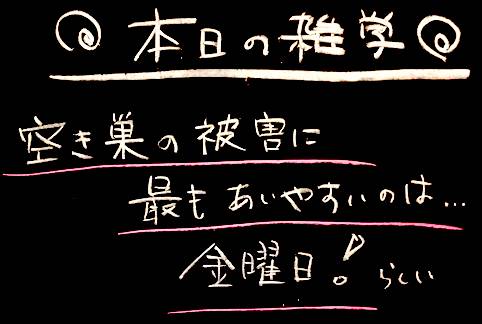 本日の雑学
空き巣の被害に
最もあいやすいのは…
金曜日!らしい